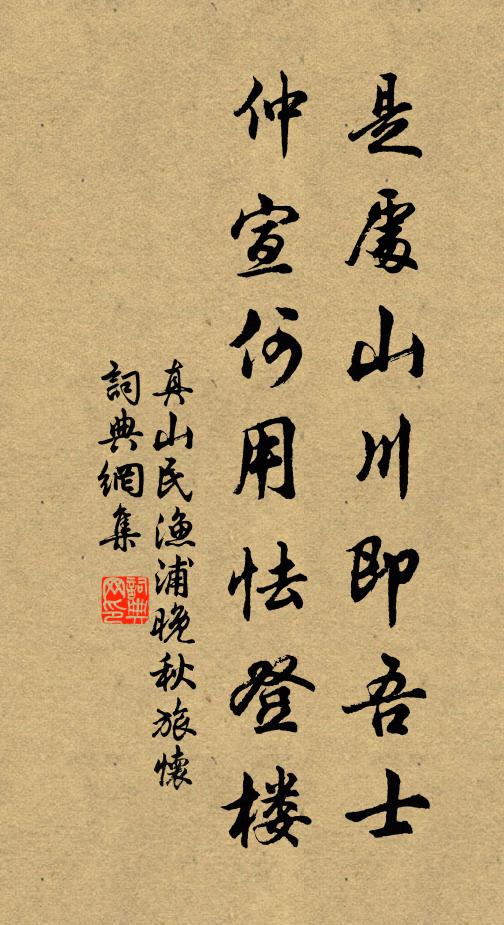 是處山川即吾士
仲宣何用怯登楼
真山民漁浦晚秋旅懷
詞典網集
詞典網印